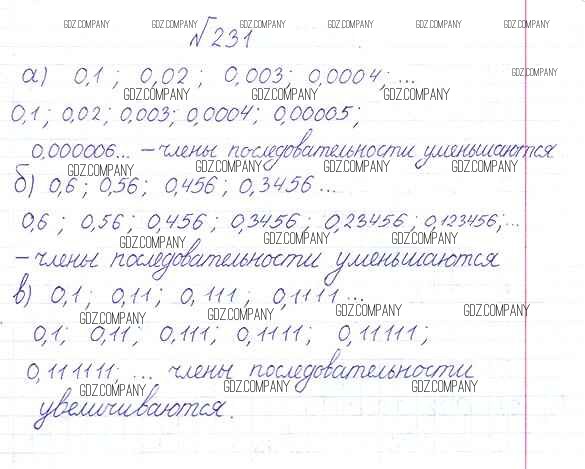 GDZ.COMPANY GDZ.COMPANY GDZ.COMPANY GDZ.COMPANY GDZ.COMPANY GDZ.COMPANY
№231
GDZ.COMPANY
а) 0,1; 0,02; 0,003; 0,0004; ...
GDZ.COMPANY GDZ.COMPANY GDZ.COMPANY
0,1; 0,02; 0,003; 0,0004; 0,00005;
0,000006... – члены последовательности уменьшаются
GDZ.COMPANY GDZ.COMPANY GDZ.COMPANY GDZ.COMPANY
б) 0,6; 0,56; 0,456; 0,3456...
0,6; 0,56; 0,456; 0,3456; 0,23456; 0,123456;...
GDZ.COMPANY GDZ.COMPANY GDZ.COMPANY
– члены последовательности уменьшаются
в) 0,1; 0,11; 0,111; 0,1111...
GDZ.COMPANY GDZ.COMPANY GDZ.COMPANY GDZ.COMPANY
0,1; 0,11; 0,111; 0,1111; 0,11111;
0,111111; ... члены последовательности
GDZ.COMPANY GDZ.COMPANY GDZ.COMPANY
увеличиваются.